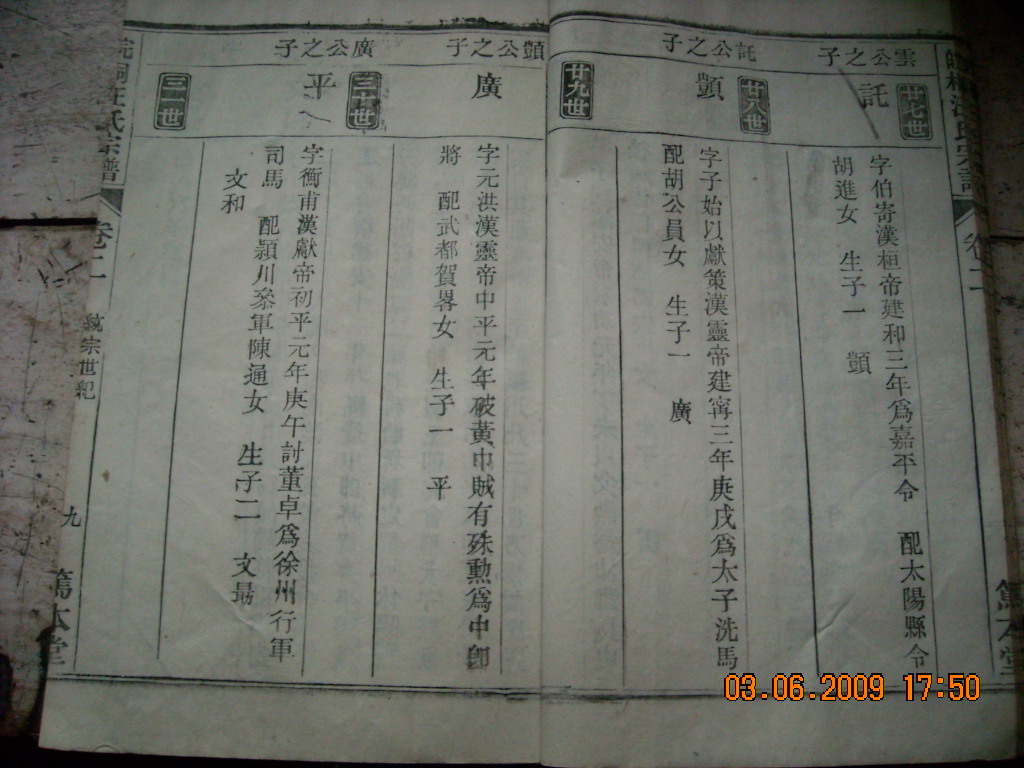 雲公之子
廿七世
託
字伯寄漢桓帝建和三年爲嘉平令 配太陽縣令
胡進女 生子一 顗
託公之子
廿八世
顗
字子始以獻策漢靈帝建寧三年庚戌爲太子洗馬
配胡公員女 生子一 廣
廿九世
顗公之子
廣
字元洪漢靈帝中平元年破黃巾賊有殊勳爲中郎
將 配武都賀畧女 生子一 平
廣公之子
三十世
平
字衡甫漢獻帝初平元年庚午討董卓爲徐州行軍
司馬 配潁川叅軍陳通女 生子二 文朂
文和
三一世
皖桐汪氏宗譜
卷二
統宗世紀
九
篤本堂
皖桐汪氏宗譜
卷二
篤本堂
03.06.2009 17:50